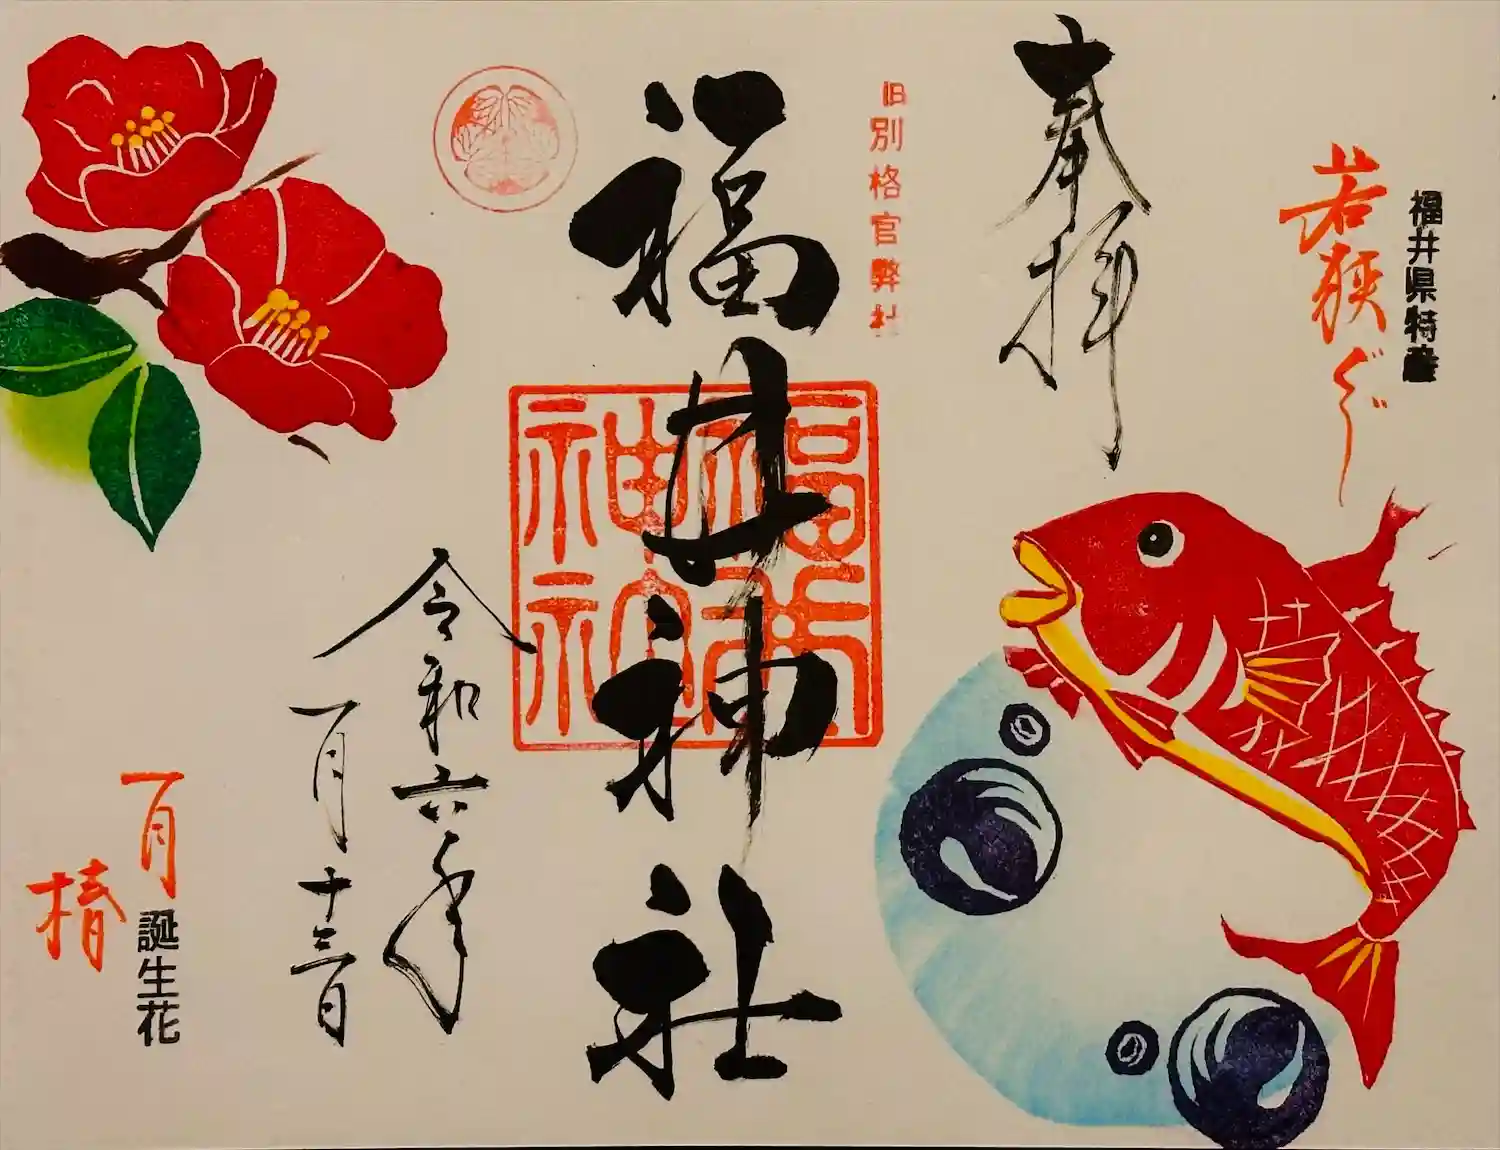 福井県特産
若狭ぐじ
奉拝
旧別格官弊社
福井神社
福井神社
令和六年
一月十三日
一月
誕生花
椿